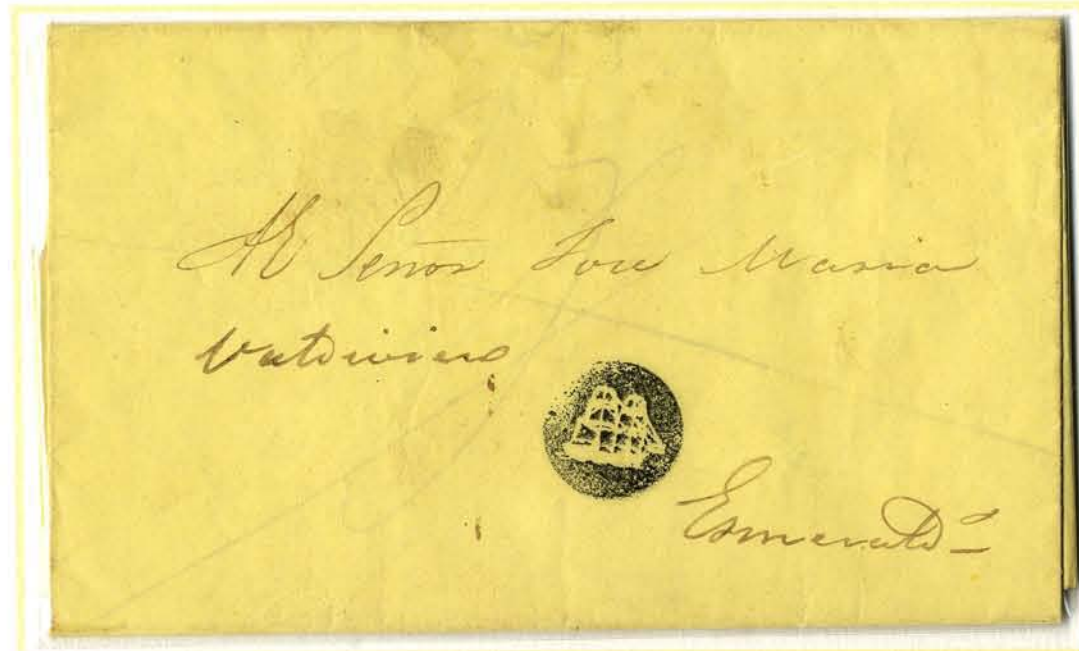 Al Señor Jose Maria
Valdivieso
Esmeralds